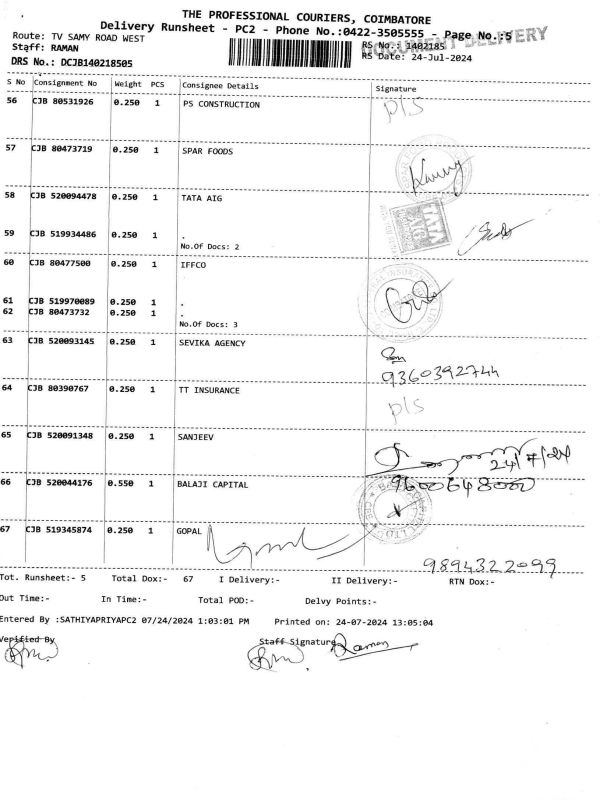 THE PROFESSIONAL COURIERS, COIMBATORE
Delivery Runsheet - PC2 - Phone No.:0422-3505555 - Page No.:5
DOCUMENT DELIVERY
Route: TV SAMY ROAD WEST
Staff: RAMAN
RS No.: 1402185
DRS No.: DCJB140218505
RS Date: 24-Jul-2024
S No Consignment No Weight PCS Consignee Details Signature
56 CJB 80531926 0.250 1 PS CONSTRUCTION p/s
57 CJB 80473719 0.250 1 SPAR FOODS
58 CJB 520094478 0.250 1 TATA AIG
TATA
AIG
59 CJB 519934486 0.250 1 .
No.Of Docs: 2
60 CJB 80477500 0.250 1 IFFCO
61 CJB 519970089 0.250 1 .
62 CJB 80473732 0.250 1 .
No.Of Docs: 3
63 CJB 520093145 0.250 1 SEVIKA AGENCY
9360392744
64 CJB 80390767 0.250 1 TT INSURANCE p/s
65 CJB 520091348 0.250 1 SANJEEV
24/7/24
66 CJB 520044176 0.550 1 BALAJI CAPITAL
67 CJB 519345874 0.250 1 GOPAL
9894322099
Tot. Runsheet:- 5 Total Dox:- 67 I Delivery:- II Delivery:- RTN Dox:-
Out Time:- In Time:- Total POD:- Delvy Points:-
Entered By :SATHIYAPRIYAPC2 07/24/2024 1:03:01 PM Printed on: 24-07-2024 13:05:04
Verified By Staff Signature Raman